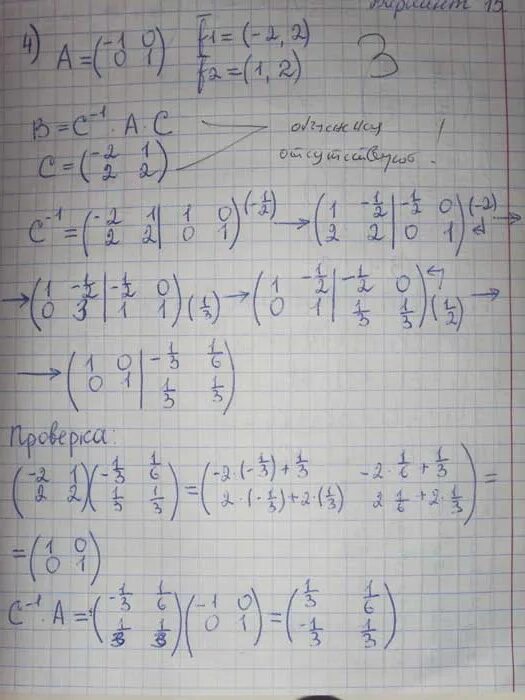 Вариант 15
4) A = (-1 0; 0 1) f1 = (-2, 2)
f2 = (1, 2)
3
B = C^-1 · A · C
C = (-2 1; 2 2)
отсутствуют.
C^-1 = (-2 1 | 1 0; 2 2 | 0 1) (-1/2) → (1 -1/2 | -1/2 0; 2 2 | 0 1) (-2) →
→ (1 -1/2 | -1/2 0; 0 3 | 1 1) (1/3) → (1 -1/2 | -1/2 0; 0 1 | 1/3 1/3) (1/2) →
→ (1 0 | -1/3 1/6; 0 1 | 1/3 1/3)
Проверка:
(-2 1; 2 2) (-1/3 1/6; 1/3 1/3) = (-2·(-1/3)+1/3 -2·1/6+1/3; 2·(-1/3)+2·(1/3) 2 1/6+2·1/3) =
= (1 0; 0 1)
C^-1 · A = (-1/3 1/6; 1/3 1/3) (-1 0; 0 1) = (1/3 1/6; -1/3 1/3)